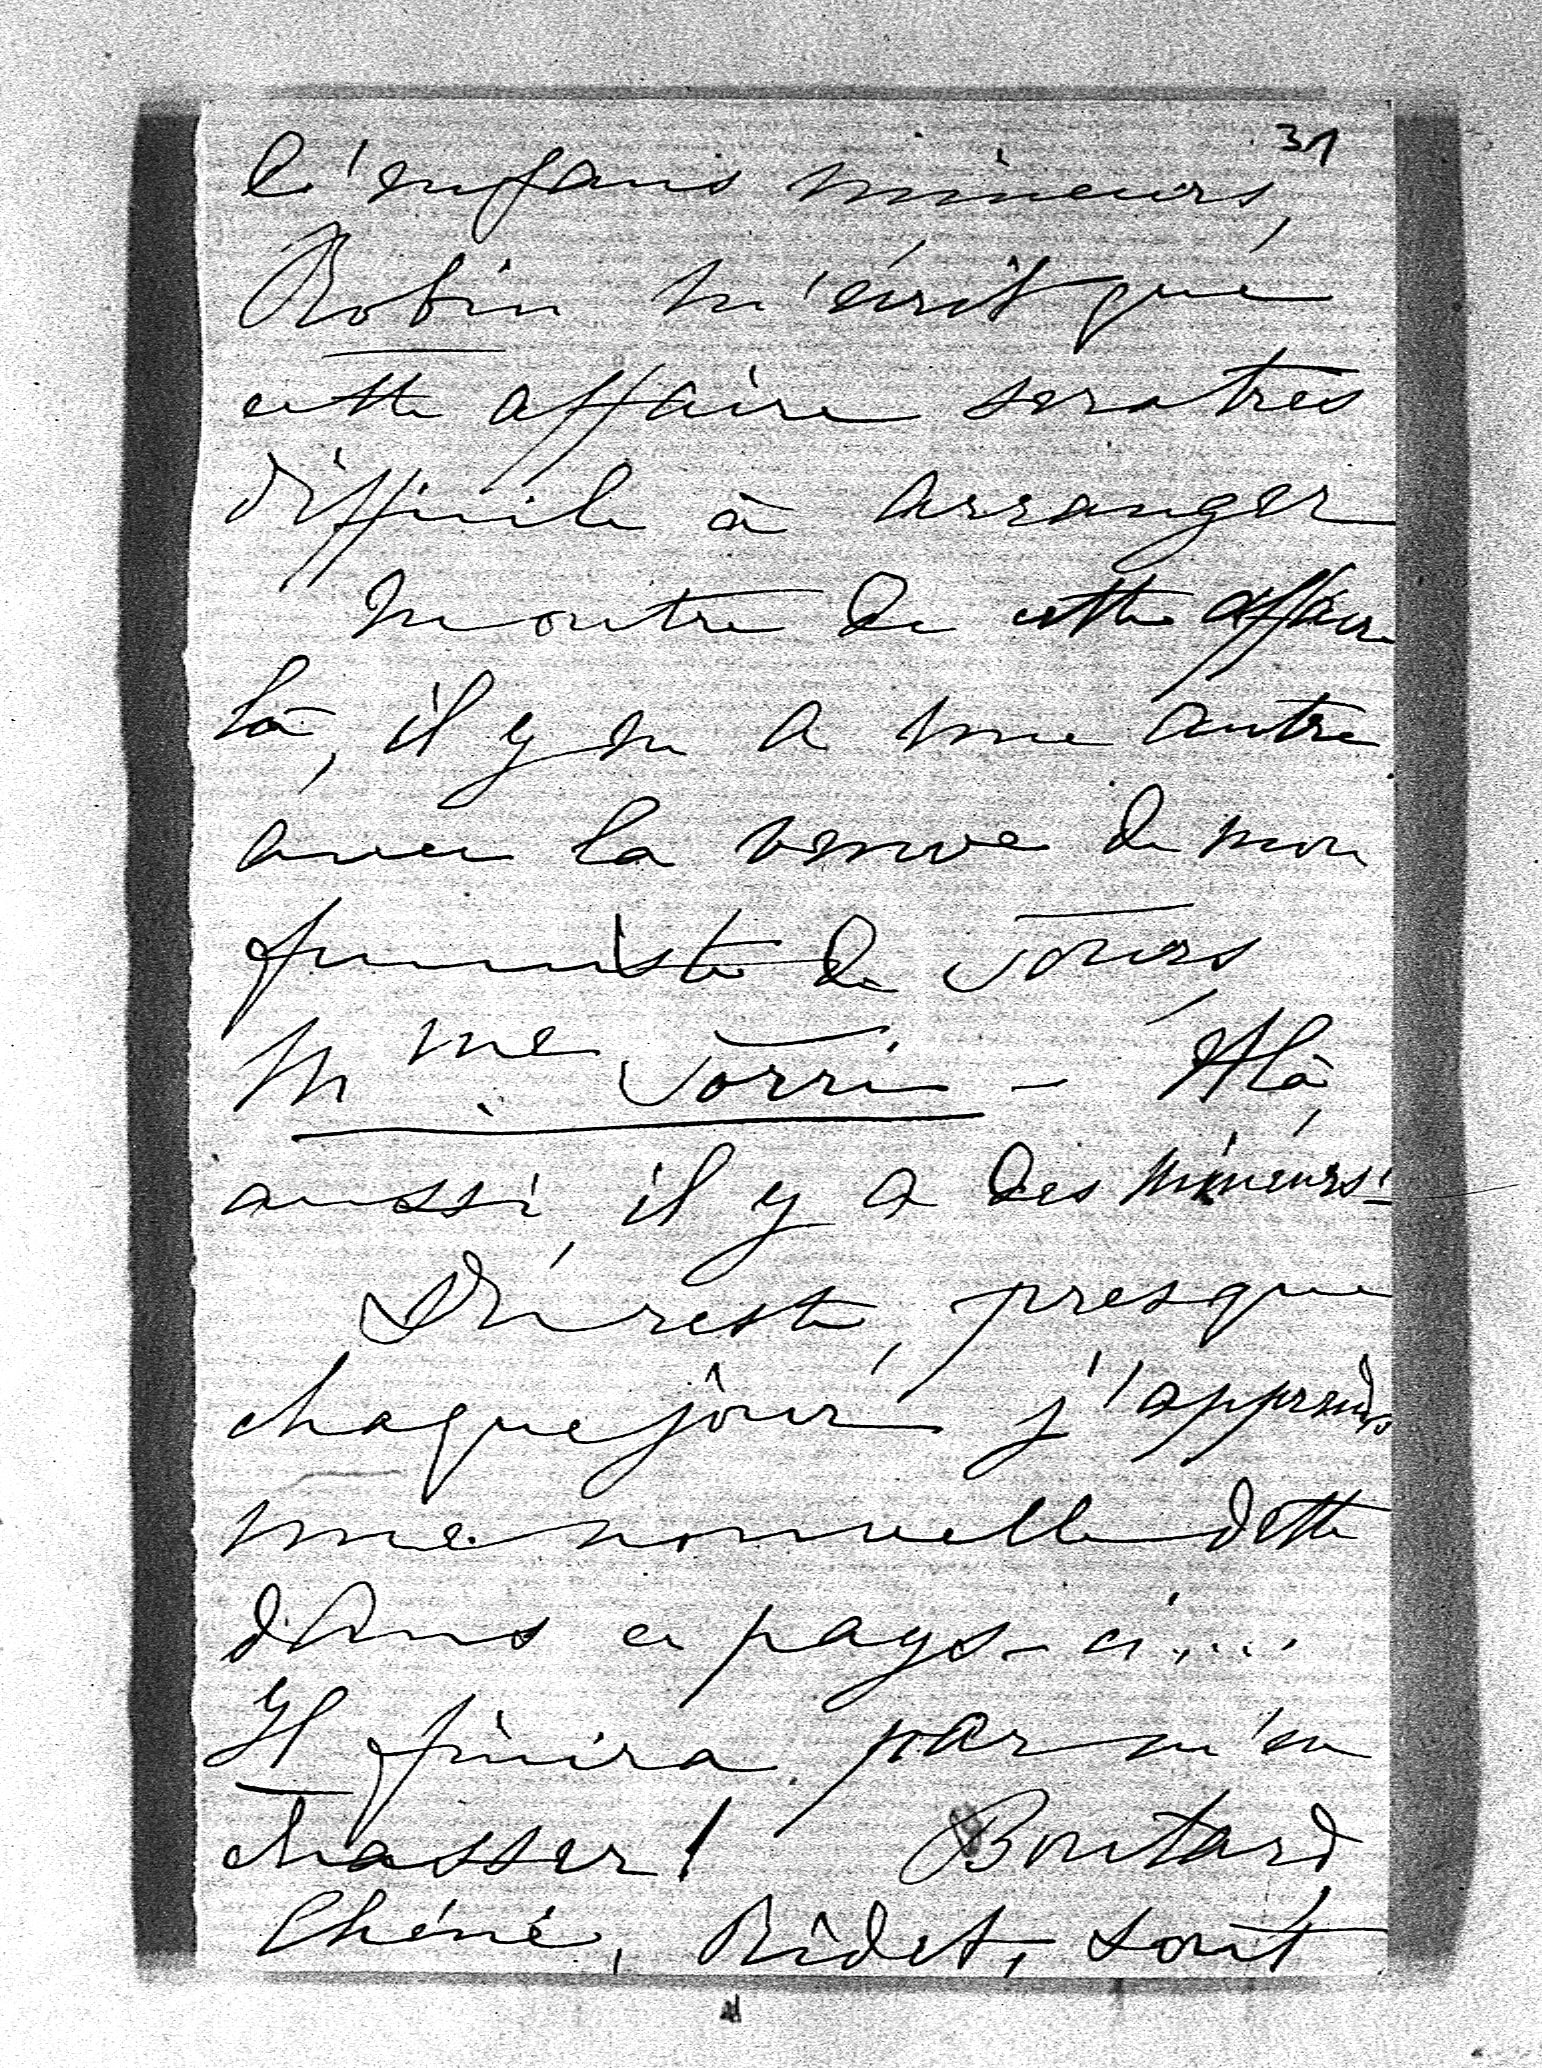 31
d'enfans mineurs,
Robin m'écrit que
cette affaire sera très
difficile à arranger
En outre de cette affaire
là, il y en a une autre
avec la veuve de mon
fumiste de Tours,
Mme Torrin - Et là,
aussi, il y a des mineurs!
Du reste, presque
chaque jour, j'apprends
une nouvelle dette
dans ce pays-ci....
Il finira par m'en
chasser! Boutard
Chéné, Ridet, sont